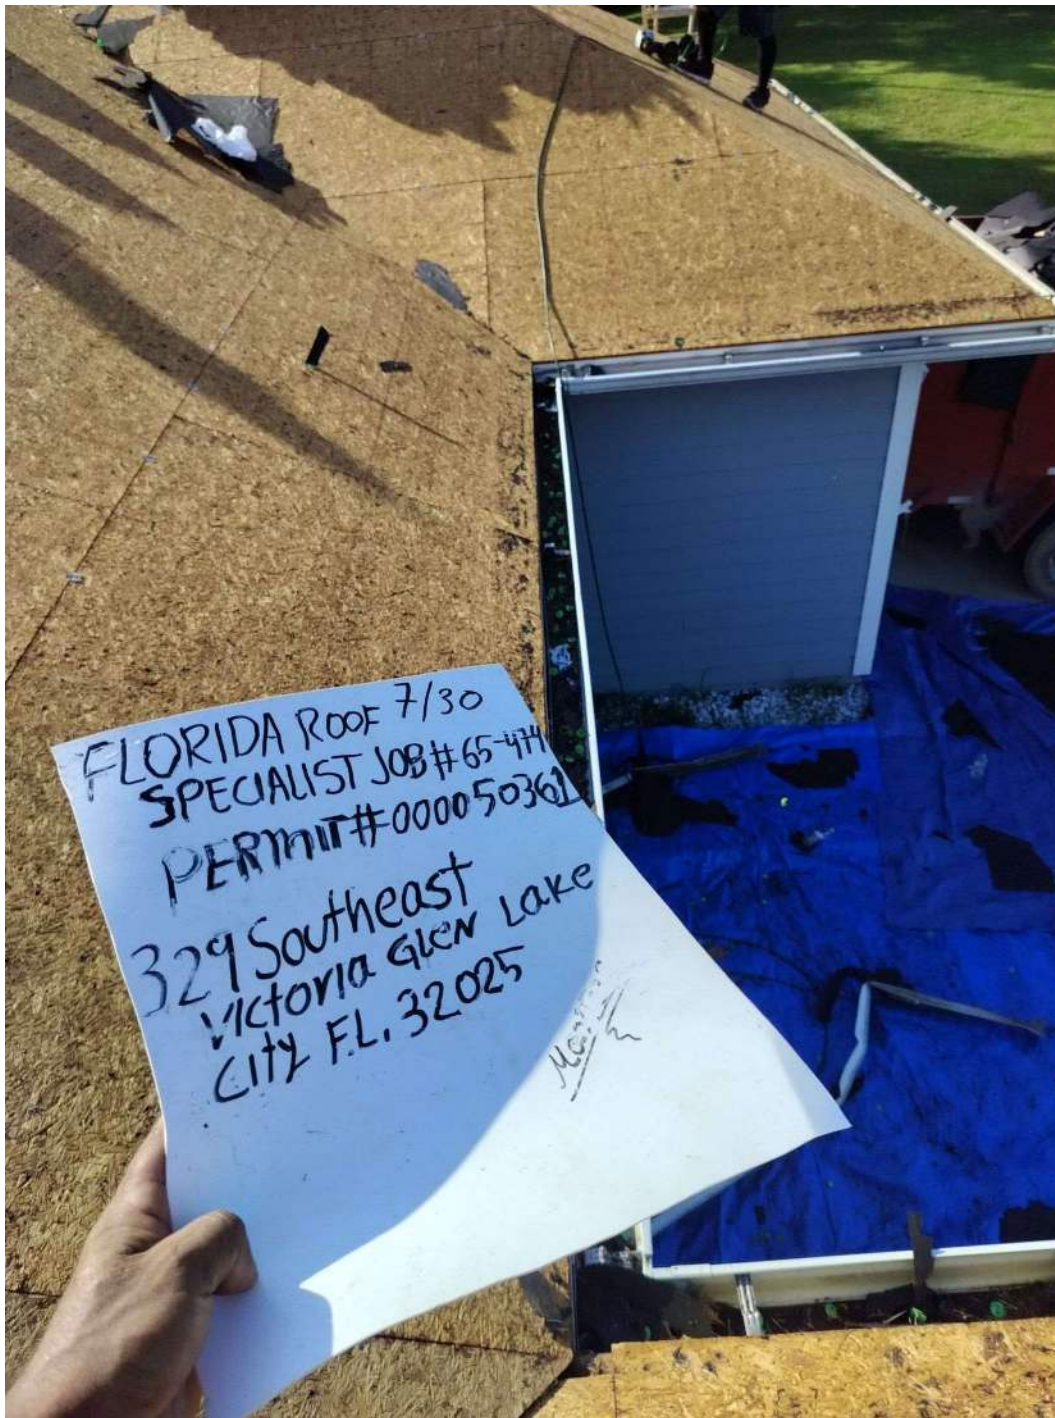 FLORIDA ROOF 7/30
SPECIALIST JOB# 65-474
PERMIT# 000050361
329 Southeast
Victoria GLEN LAKE
City F.L. 32025